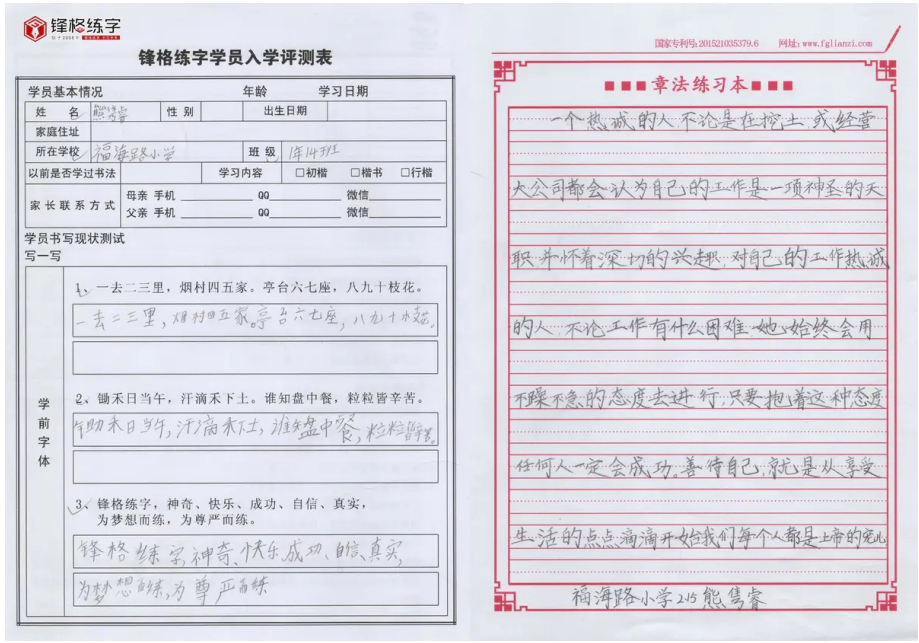 锋格练字
锋格练字学员入学评测表
学员基本情况 年龄 学习日期
姓名 熊隽睿 性别 出生日期
家庭住址
所在学校 福海路小学 班级 1年14班
以前是否学过书法 学习内容 □初楷 □楷书 □行楷
家长联系方式
母亲 手机 QQ 微信
父亲 手机 QQ 微信
学员书写现状测试
写一写
学前字体
1、一去二三里，烟村四五家。亭台六七座，八九十枝花。
一去二三里，烟村四五家。亭台六七座，八九十枝花。
2、锄禾日当午，汗滴禾下土。谁知盘中餐，粒粒皆辛苦。
锄禾日当午，汗滴禾下土，谁知盘中餐，粒粒皆辛苦。
3、锋格练字，神奇、快乐、成功、自信、真实，
为梦想而练，为尊严而练。
锋格练字，神奇、快乐、成功、自信、真实，
为梦想而练，为尊严而练
国家专利号：201521035379.6 网址：www.fglianzi.com
章法练习本
一个热诚的人，不论是在挖土，或经营
大公司都会认为自己的工作是一项神圣的天
职，并怀着深切的兴趣，对自己的工作热诚
的人，不论工作有什么困难，她始终会用
不躁不急的态度去进行，只要抱着这种态度
任何人一定会成功。善待自己，就是从享受
生活的点点滴滴开始我们每个人都是上帝的宠儿
福海路小学2.15熊隽睿